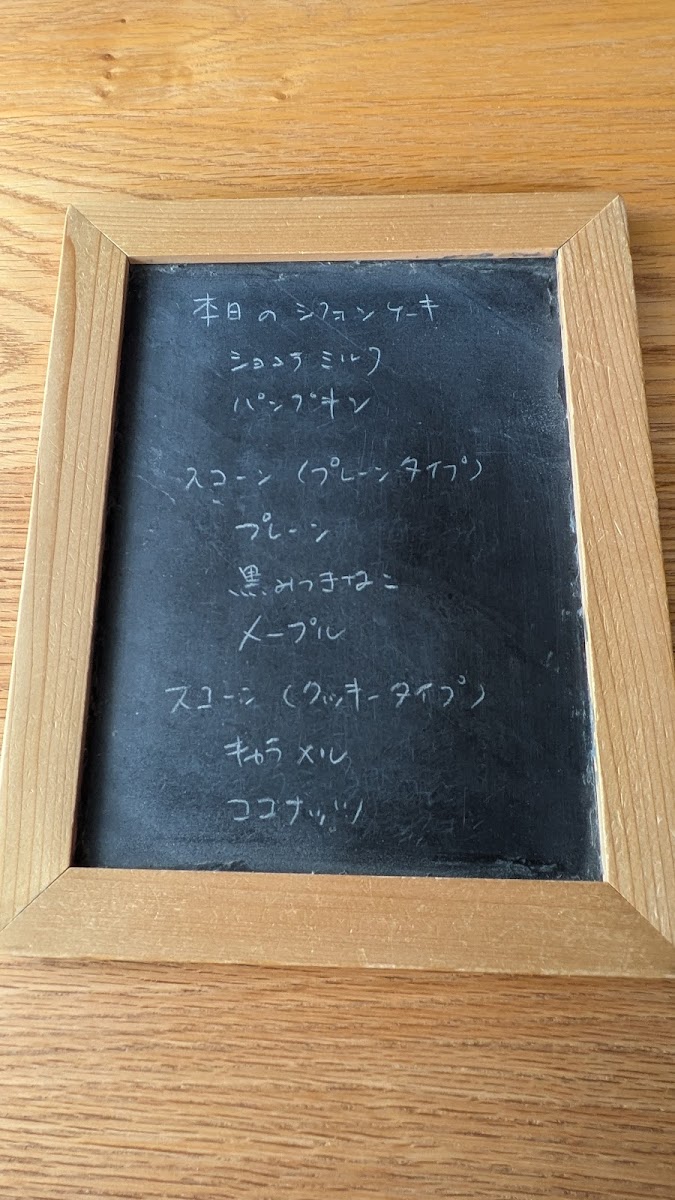 本日のシフォンケーキ
ショコラミルク
パンプキン
スコーン（プレーンタイプ）
プレーン
黒みつきなこ
メープル
スコーン（クッキータイプ）
キャラメル
ココナッツ